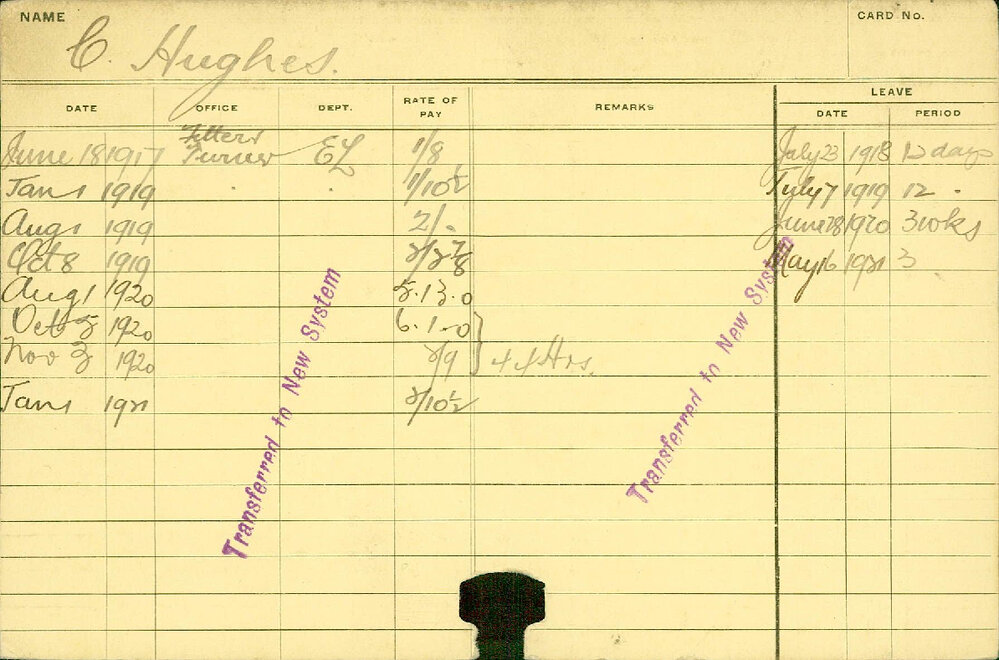 NAME CARD No.
C. Hughes.
LEAVE
DATE OFFICE DEPT. RATE OF PAY REMARKS DATE PERIOD
Fitter &
June 18 1917 Turner EL 1/8 July 23 1918 12 days
Jan 1 1919 " " 1/10½ July 7 1919 12 "
Aug 1 1919 2/- June 28 1920 3 wks
Oct 8 1919 2/2⅞ May 16 1921 3
Aug 1 1920 5.13.0
Oct 5 1920 6.1.0
Nov 3 1920 2/9 } 44 Hrs.
Jan 1 1921 2/10½
Transferred to New System
Transferred to New System